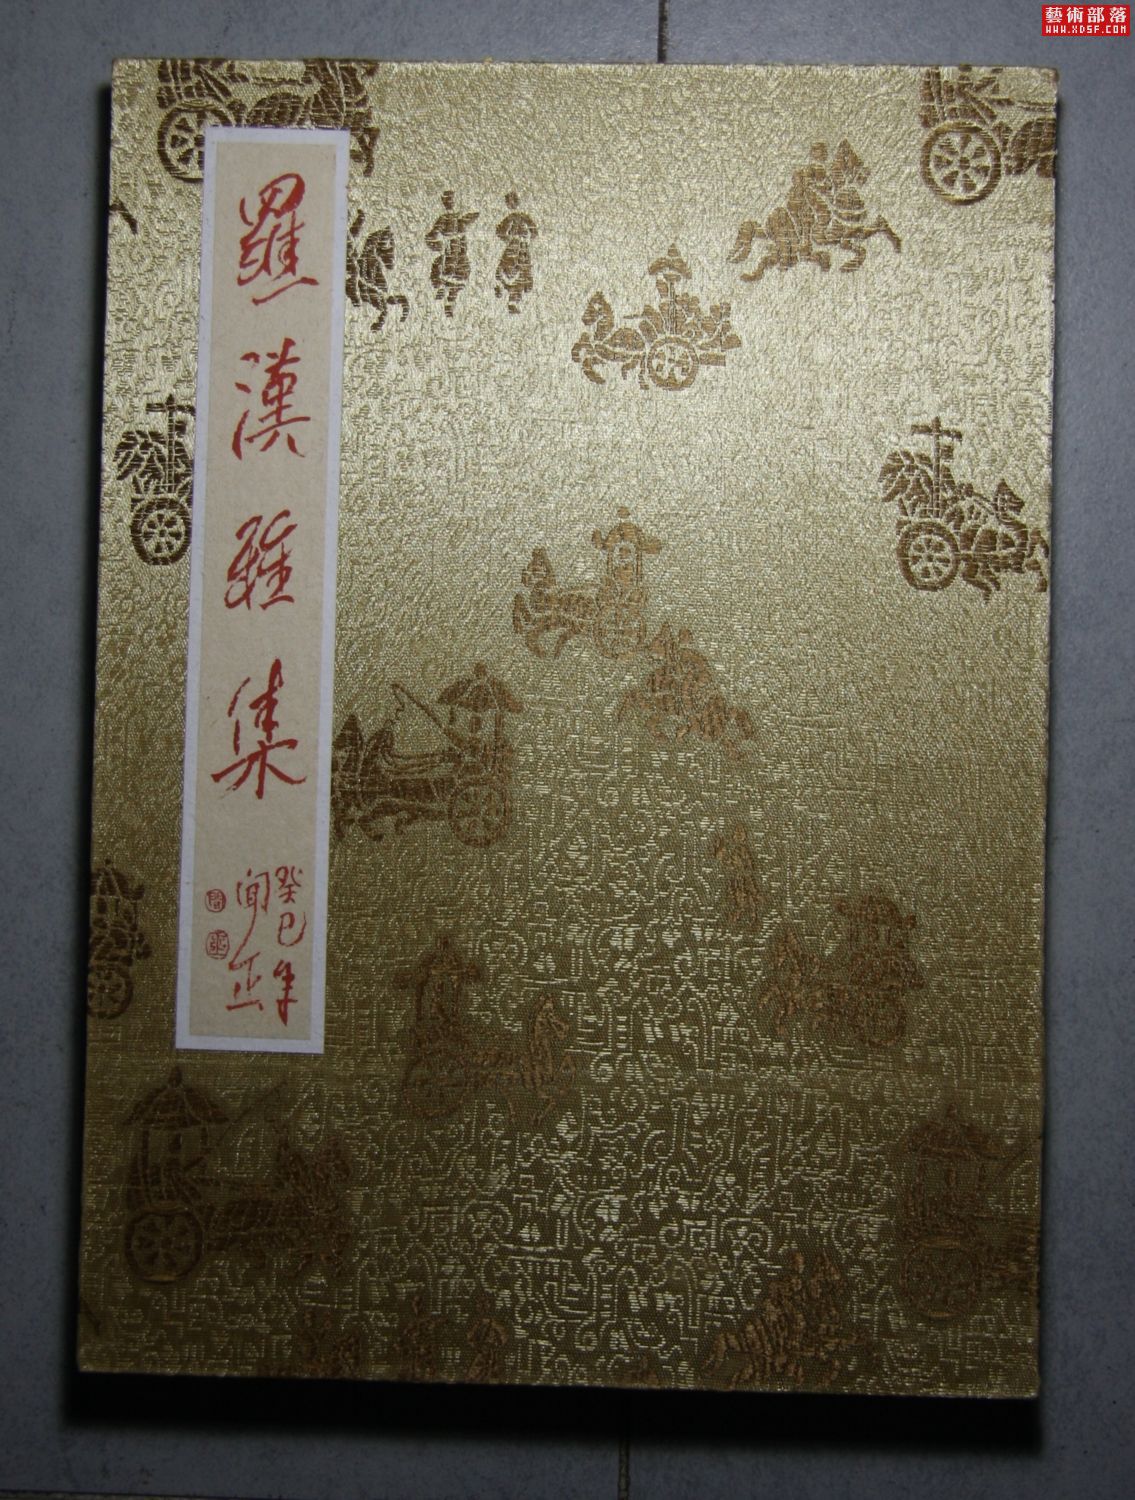 藝術部落
WWW.XDSF.COM
羅漢雅集
癸巳年
闻正